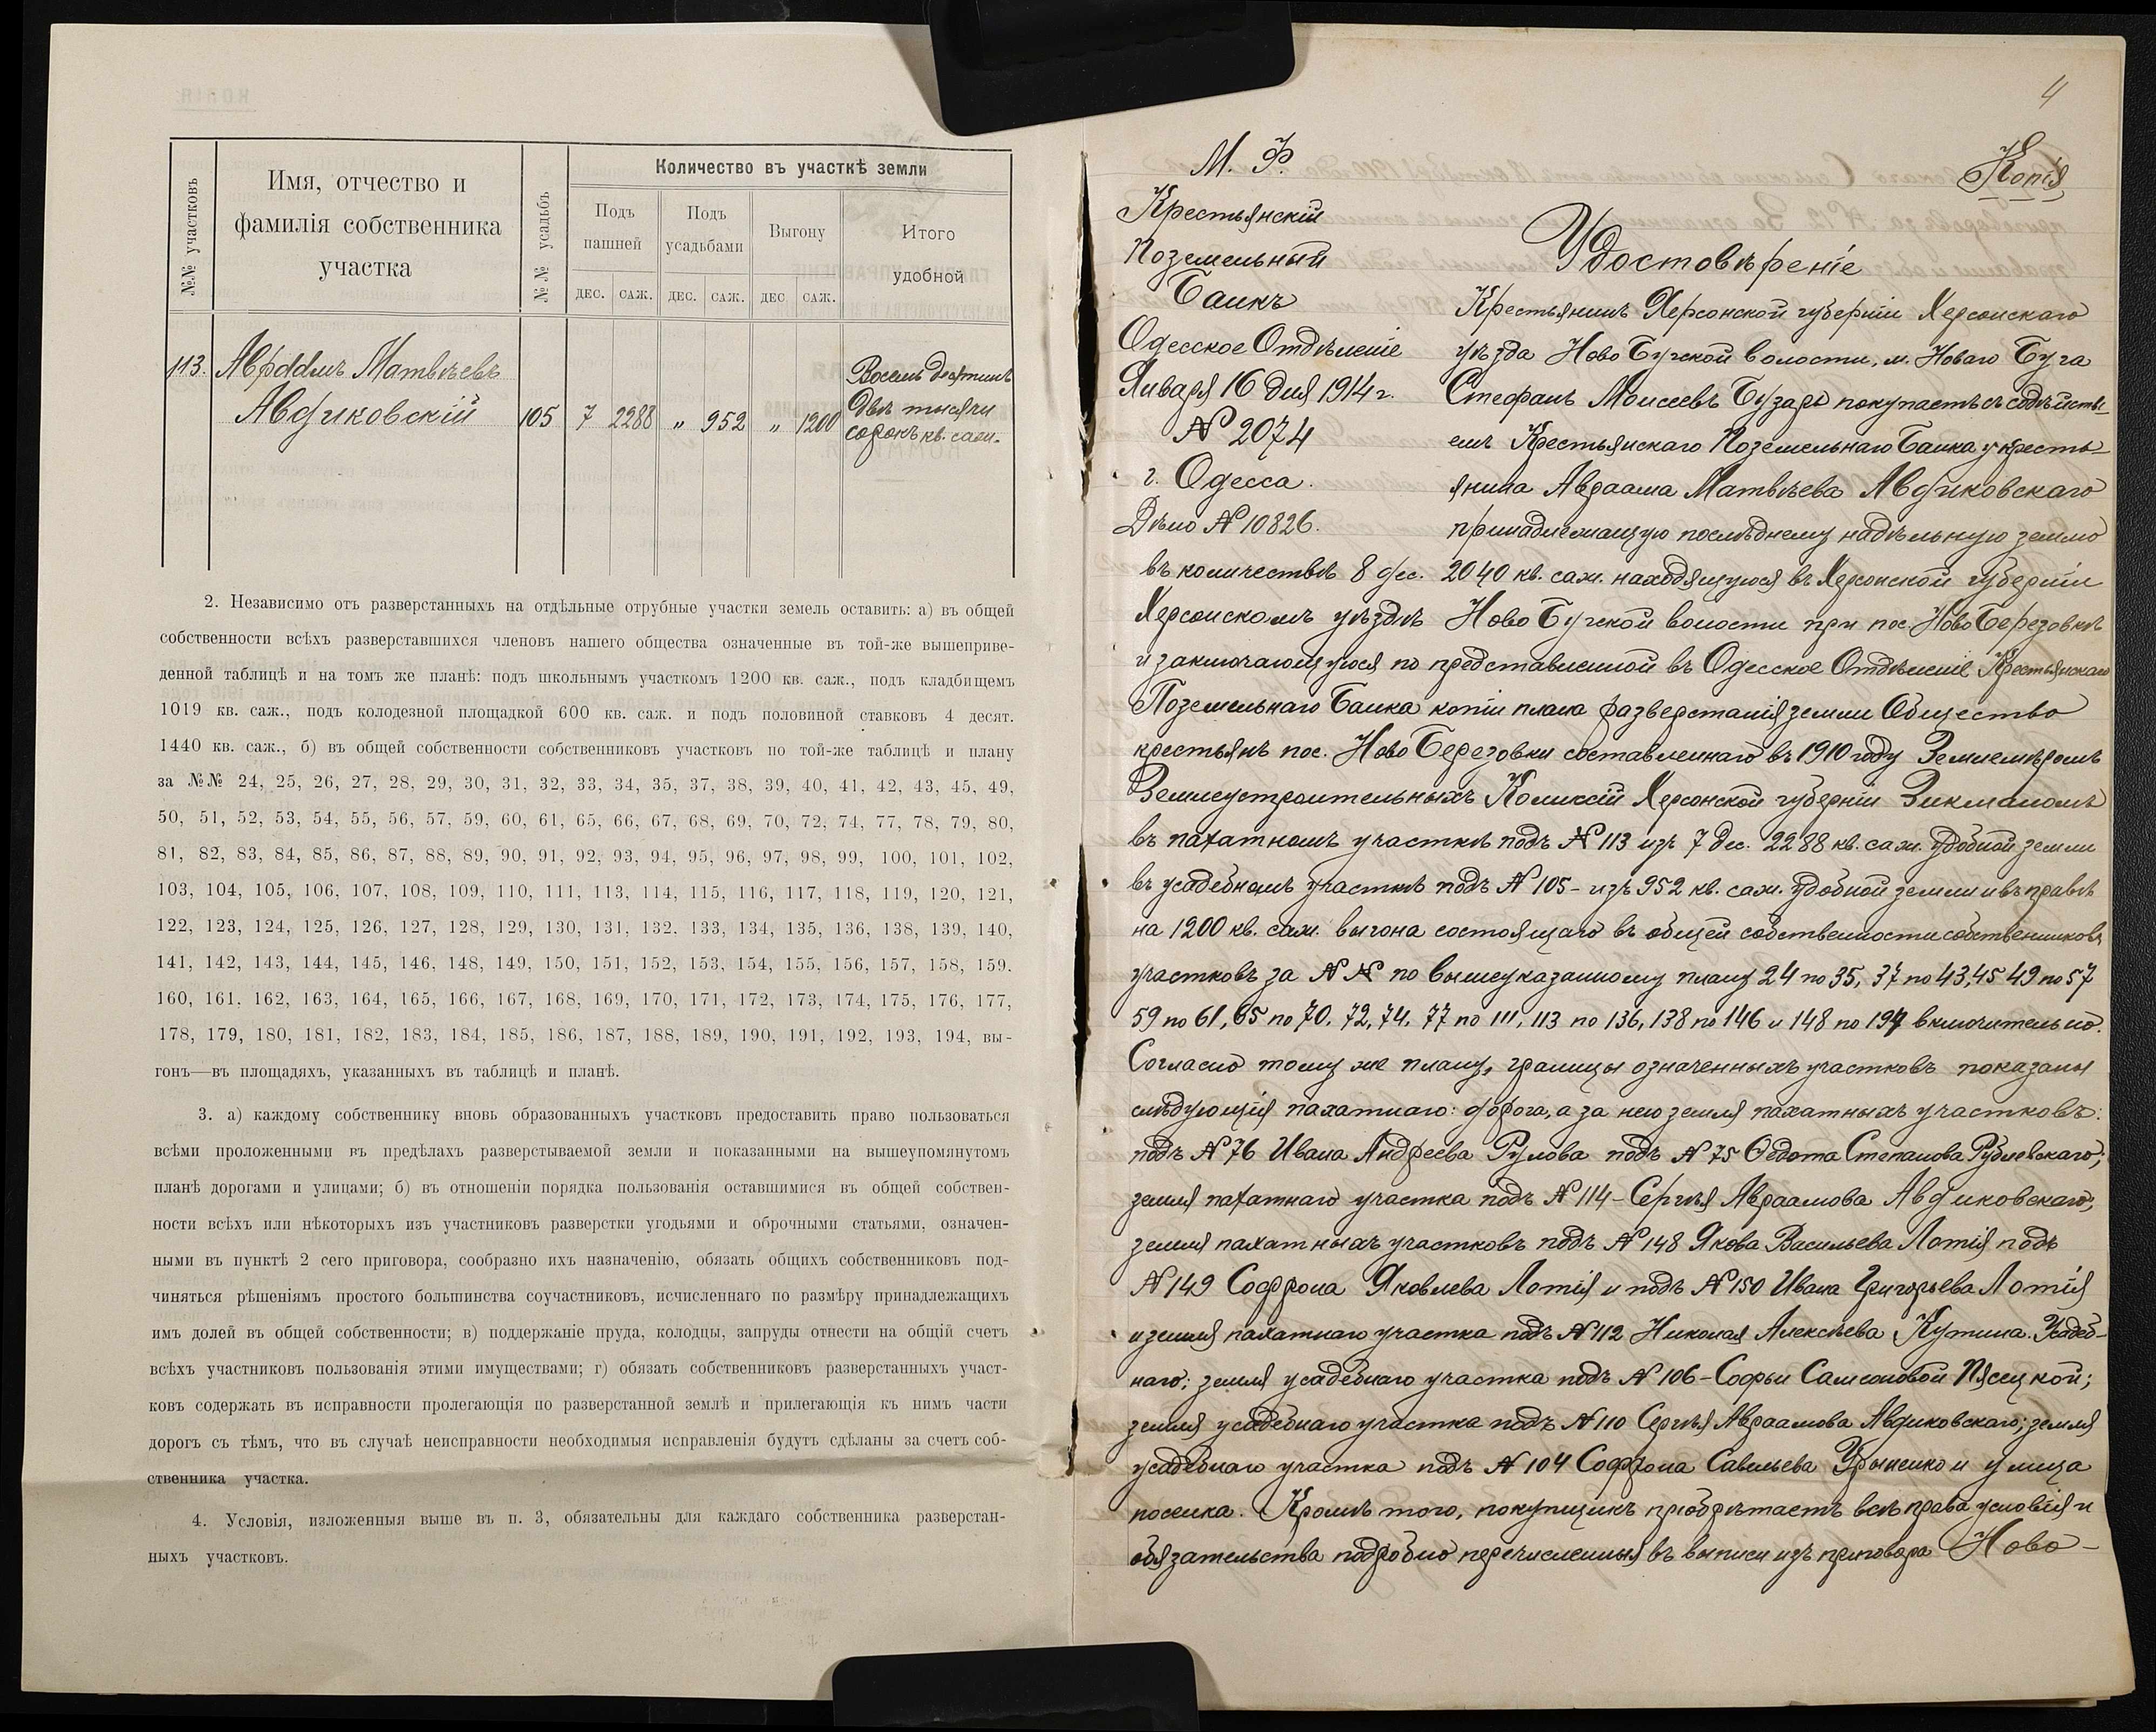 №№ участковъ
Имя, отчество и
фамилія собственника
участка
№№ усадьбъ
Количество въ участкѣ земли
Подъ
пашней
Подъ
усадьбами
Выгону
Итого
удобной
ДЕС. САЖ. ДЕС. САЖ. ДЕС САЖ.
113. Авраамъ Матвѣевъ
Авдиковскій 105 7 2288 „ 952 „ 1200
Восемь десятинъ
двѣ тысячи
сорокъ кв. саж.
2. Независимо отъ разверстанныхъ на отдѣльные отрубные участки земель оставить: а) въ общей
собственности всѣхъ разверставшихся членовъ нашего общества означенные въ той-же вышеприве-
денной таблицѣ и на томъ же планѣ: подъ школьнымъ участкомъ 1200 кв. саж., подъ кладбищемъ
1019 кв. саж., подъ колодезной площадкой 600 кв. саж. и подъ половиной ставковъ 4 десят.
1440 кв. саж., б) въ общей собственности собственниковъ участковъ по той-же таблицѣ и плану
за №№ 24, 25, 26, 27, 28, 29, 30, 31, 32, 33, 34, 35, 37, 38, 39, 40, 41, 42, 43, 45, 49,
50, 51, 52, 53, 54, 55, 56, 57, 59, 60, 61, 65, 66, 67, 68, 69, 70, 72, 74, 77, 78, 79, 80,
81, 82, 83, 84, 85, 86, 87, 88, 89, 90, 91, 92, 93, 94, 95, 96, 97, 98, 99, 100, 101, 102,
103, 104, 105, 106, 107, 108, 109, 110, 111, 113, 114, 115, 116, 117, 118, 119, 120, 121,
122, 123, 124, 125, 126, 127, 128, 129, 130, 131, 132. 133, 134, 135, 136, 138, 139, 140,
141, 142, 143, 144, 145, 146, 148, 149, 150, 151, 152, 153, 154, 155, 156, 157, 158, 159.
160, 161. 162, 163, 164, 165, 166, 167, 168, 169, 170, 171, 172, 173, 174, 175, 176, 177,
178, 179, 180, 181, 182, 183, 184, 185, 186, 187, 188, 189, 190, 191, 192, 193, 194, вы-
гонъ—въ площадяхъ, указанныхъ въ таблицѣ и планѣ.
3. а) каждому собственнику вновь образованныхъ участковъ предоставить право пользоваться
всѣми проложенными въ предѣлахъ разверстываемой земли и показанными на вышеупомянутомъ
планѣ дорогами и улицами; б) въ отношеніи порядка пользованія оставшимися въ общей собствен-
ности всѣхъ или нѣкоторыхъ изъ участниковъ разверстки угодьями и оброчными статьями, означен-
ными въ пунктѣ 2 сего приговора, сообразно ихъ назначенію, обязать общихъ собственниковъ под-
чиняться рѣшеніямъ простого большинства соучастниковъ, исчисленнаго по размѣру принадлежащихъ
имъ долей въ общей собственности; в) поддержаніе пруда, колодцы, запруды отнести на общій счетъ
всѣхъ участниковъ пользованія этими имуществами; г) обязать собственниковъ разверстанныхъ участ-
ковъ содержать въ исправности пролегающія по разверстанной землѣ и прилегающія къ нимъ части
дорогъ съ тѣмъ, что въ случаѣ неисправности необходимыя исправленія будутъ сдѣланы за счетъ соб-
ственника участка.
4. Условія, изложенныя выше въ п. 3, обязательны для каждаго собственника разверстан-
ныхъ участковъ.
4
Копія
М. Ф.
Крестьянскій
Поземельный
Банкъ
Одесское Отдѣленіе
Января 16 дня 1914 г.
№ 2074
г. Одесса.
Дѣло № 10826.
Удостовѣреніе
Крестьянинъ Херсонской губерніи Херсонскаго
уѣзда Ново Бугской волости, м. Новаго Буга
Стефанъ Моисеевъ Бузарь покупаетъ съ содѣйстві-
емъ Крестьянскаго Поземельнаго Банка у кресть-
янина Авраама Матвѣева Авдиковскаго
принадлежащую послѣднему надѣльную землю
въ количествѣ 8 дес. 2040 кв. саж. находящуюся въ Херсонской губерніи
Херсонскомъ уѣздѣ Ново Бугской волости при пос. Ново Березовкѣ
и заключающуюся по представленной въ Одесское Отдѣленіе Крестьянскаго
Поземельнаго Банка копіи плана разверстанія земли Общество
крестьянъ пос. Ново Березовки составленнаго въ 1910 году Землемѣромъ
Землеустроительныхъ Комиссій Херсонской губерніи Зикманомъ
въ пахатномъ участкѣ подъ № 113 изъ 7 дес. 2288 кв. саж. удобной земли
въ усадебномъ участкѣ подъ № 105 - изъ 952 кв. саж. удобной земли и въ правѣ
на 1200 кв. саж. выгона состоящаго въ общей собственности собственниковъ
участковъ за №№ по вышеуказанному плану 24 по 35, 37 по 43, 45 49 по 57
59 по 61, 65 по 70. 72, 74. 77 по 111, 113 по 136, 138 по 146 и 148 по 194 включительно.
Согласно тому же плану, границы означенныхъ участковъ показаны
слѣдующія пахатнаго: дорога, а за нею земля пахатныхъ участковъ:
подъ № 76 Ивана Андреева Рулова подъ № 75 Федота Степанова Рублевскаго;
земля пахатнаго участка подъ № 114 - Сергѣя Авраамова Авдиковскаго;
земля пахатныхъ участковъ подъ № 148 Якова Васильева Лотія подъ
№ 149 Софрона Яковлева Лотія и подъ № 150 Ивана Григорьева Лотія
и земля пахатнаго участка подъ № 112 Николая Алексѣева Кутина. Усадеб-
наго: земля усадебнаго участка подъ № 106 - Софьи Самсоновой Пясецкой;
земля усадебнаго участка подъ № 110 Сергѣя Авраамова Авдиковскаго; земля
усадебнаго участка подъ № 104 Софрона Савельева и улица
поселка. Кромѣ того, покупщикъ пріобрѣтаетъ всѣ права, условія и
обязательства подробно перечисленныя въ выписи изъ приговора Ново-